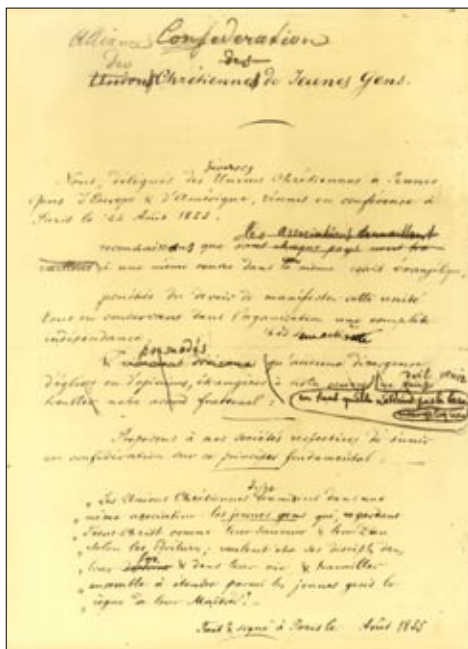 Alliance Confederation
des des
Unions Chrétiennes de Jeunes Gens.
diverses
Nous, délégués des Unions Chrétiennes de Jeunes
gens d'Europe & d'Amérique, réunis en conférence à
Paris le 22 Août 1855
les associations travaillent
reconnaissant que sont chaque pays
à une même oeuvre dans le même esprit évangélique,
pénétrés du devoir de manifester cette unité
tout en conservant dans l'organisation une complète
indépendance
persuadés
& qu'aucune divergence
d'églises ou d'opinions, étrangères à notre
troubler notre accord fraternel :
Proposons à nos sociétés respectives de s'unir
en confédération sur ce principe fondamental :
„ Les Unions Chrétiennes dans une
„ même association les jeunes gens qui, regardant
„ Jésus-Christ comme leur Sauveur & leur Dieu
„ selon les Ecritures, veulent être ses disciples dans
„ leur foi & dans leur vie & travailler
„ ensemble à étendre parmi les jeunes gens le
„ règne de leur Maître." _
Fait & signé à Paris le Août 1855